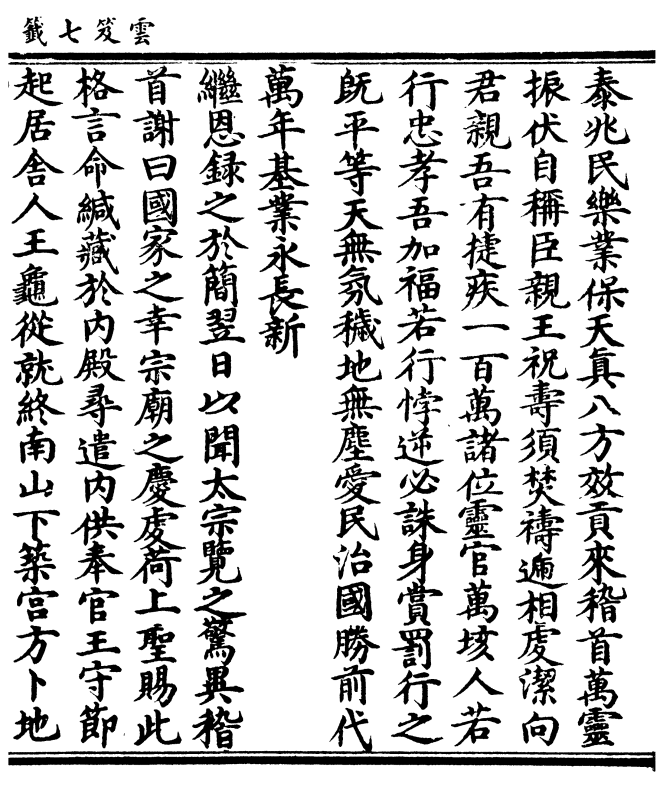 雲笈七籤
泰兆民樂業保天眞八方效貢來稽首萬靈
振伏自稱臣親王祝壽須焚禱遍相虔潔向
君親吾有捷疾一百萬諸位靈官萬垓人若
行忠孝吾加福若行悖逆必誅身賞罰行之
旣平等天無氛穢地無塵愛民治國勝前代
萬年基業永長新
繼恩録之於簡翌日以聞太宗覽之驚異稽
首謝曰國家之幸宗廟之慶虔荷上聖賜此
格言命緘藏於内殿尋遣内供奉官王守節
起居舎人王龜從就終南山下築宫方卜地